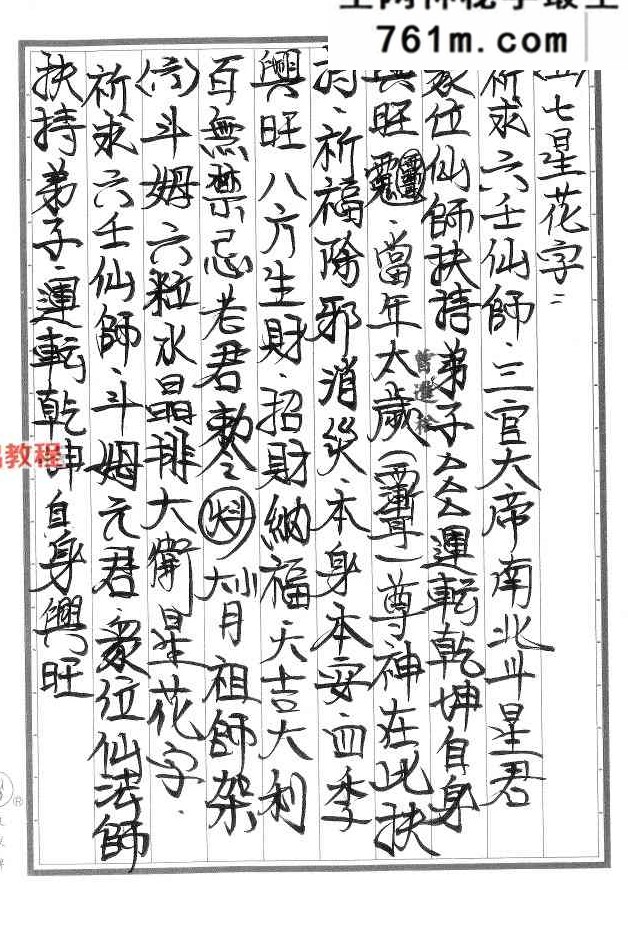 761m.com
七星花字:
祈求六壬仙師·三官大帝南北斗星君
眾位仙師扶持弟子 運転乾坤自身
興旺 ·當年太歲( )尊神在此扶
持·祈福除邪消災·本身本安四季
興旺八方生財·招財納福·大吉大利
百無禁忌老君勅令 祖師架
(六)斗姆六粒水晶排大衛星花字·
祈求六壬仙師·斗姆元君·眾位仙法師
扶持弟子·運転乾坤自身興旺
教程